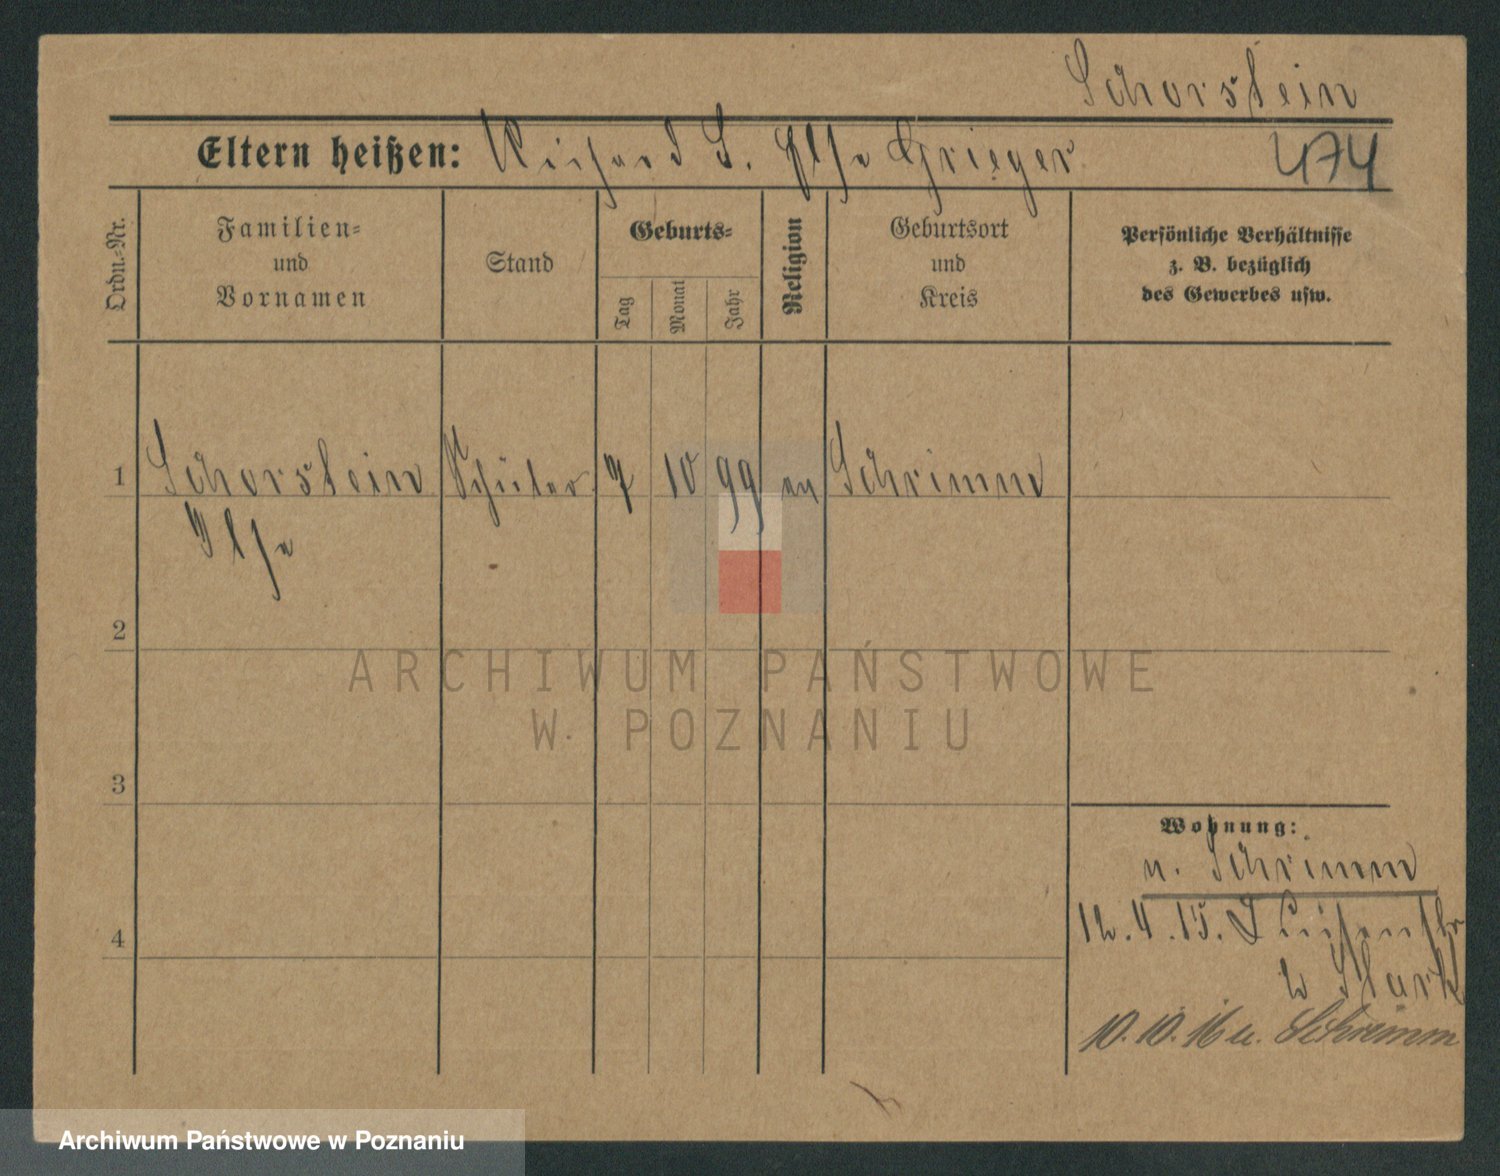 Schorstein
Eltern heißen: Richard S. Else Grieger
474
Ordn.-Nr.
Familien-
und
Vornamen
Stand
Geburts-
Tag
Monat
Jahr
Religion
Geburtsort
und
Kreis
Persönliche Verhältnisse
z. B. bezüglich
des Gewerbes usw.
1 Schorstein Schüler 7 10 99 ev Schrimm
Ilse
2
3
4
Wohnung:
n. Schrimm
12.4.15. Luisenstr
b Stark
10.10.16 n. Schrimm
ARCHIWUM PAŃSTWOWE
W POZNANIU
Archiwum Państwowe w Poznaniu